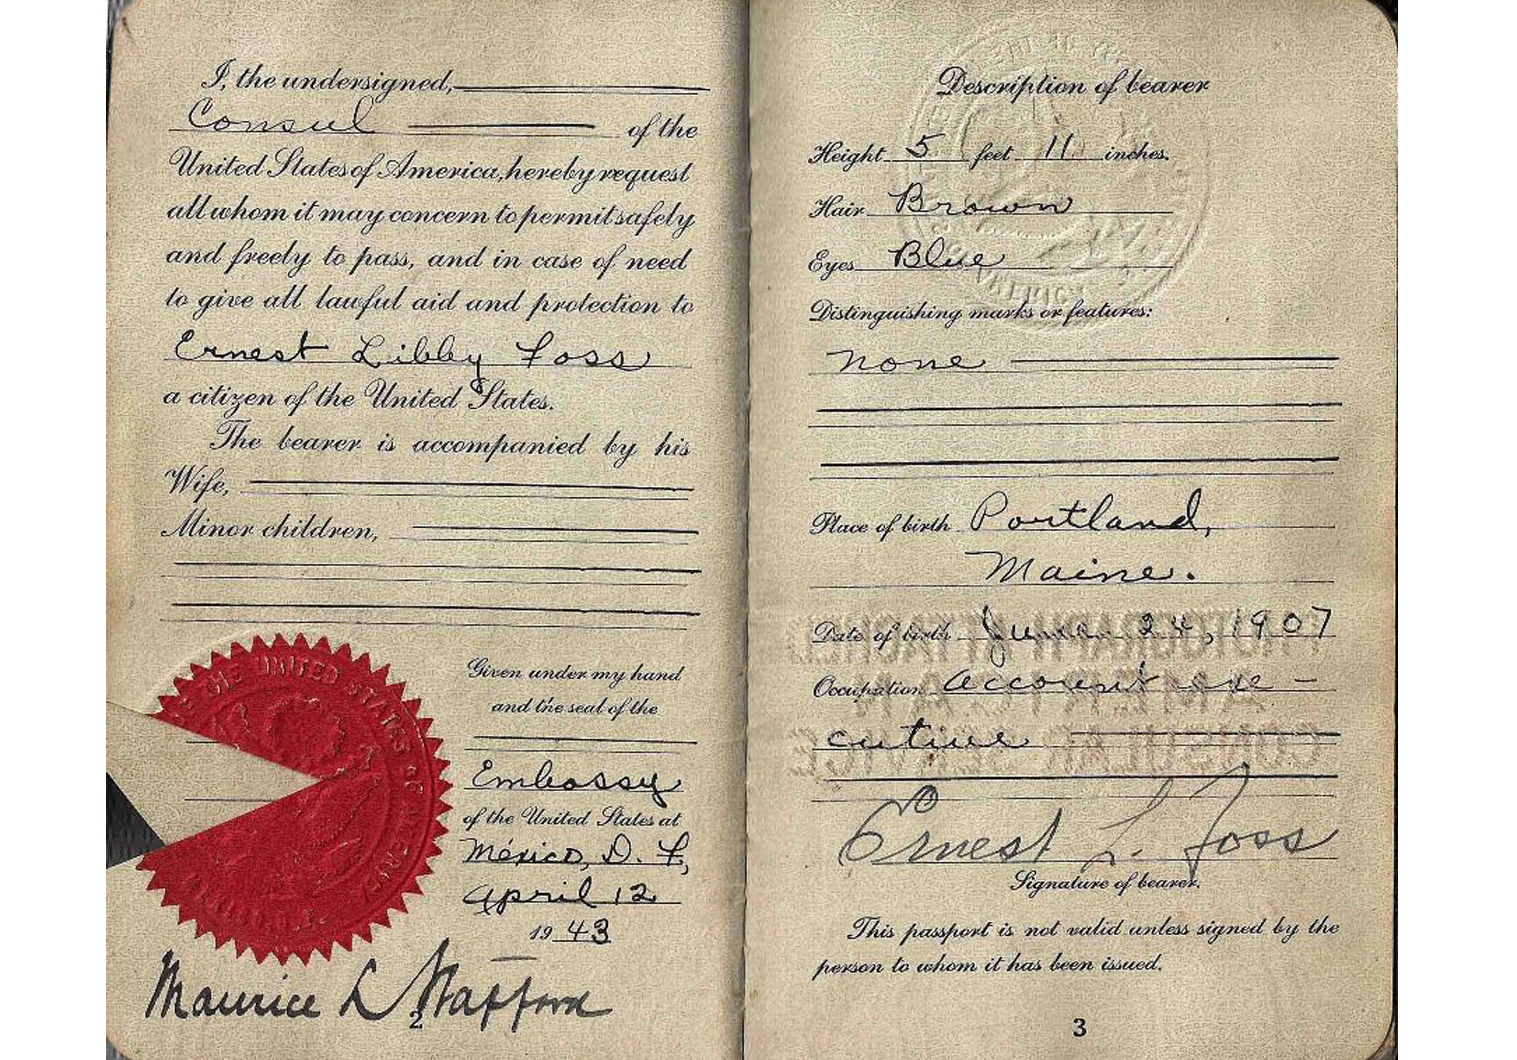 I, the undersigned,
Consul of the
United States of America, hereby request
all whom it may concern to permit safely
and freely to pass, and in case of need
to give all lawful aid and protection to
Ernest Libby Foss
a citizen of the United States.
The bearer is accompanied by his
Wife,
Minor children,
THE UNITED STATES OF AMERICA
Given under my hand
and the seal of the
Embassy
of the United States at
México, D. F,
April 12
19 43
Maurice L Stafford
2
Description of bearer
Height 5 feet 11 inches.
Hair Brown
Eyes Blue
Distinguishing marks or features:
none
Place of birth Portland,
Maine.
Date of birth June 24, 1907
Occupation Account exe-
cutive
PHOTOGRAPH ATTACHED
AMERICAN
CONSULAR SERVICE
Ernest L. Foss
Signature of bearer.
This passport is not valid unless signed by the
person to whom it has been issued.
3